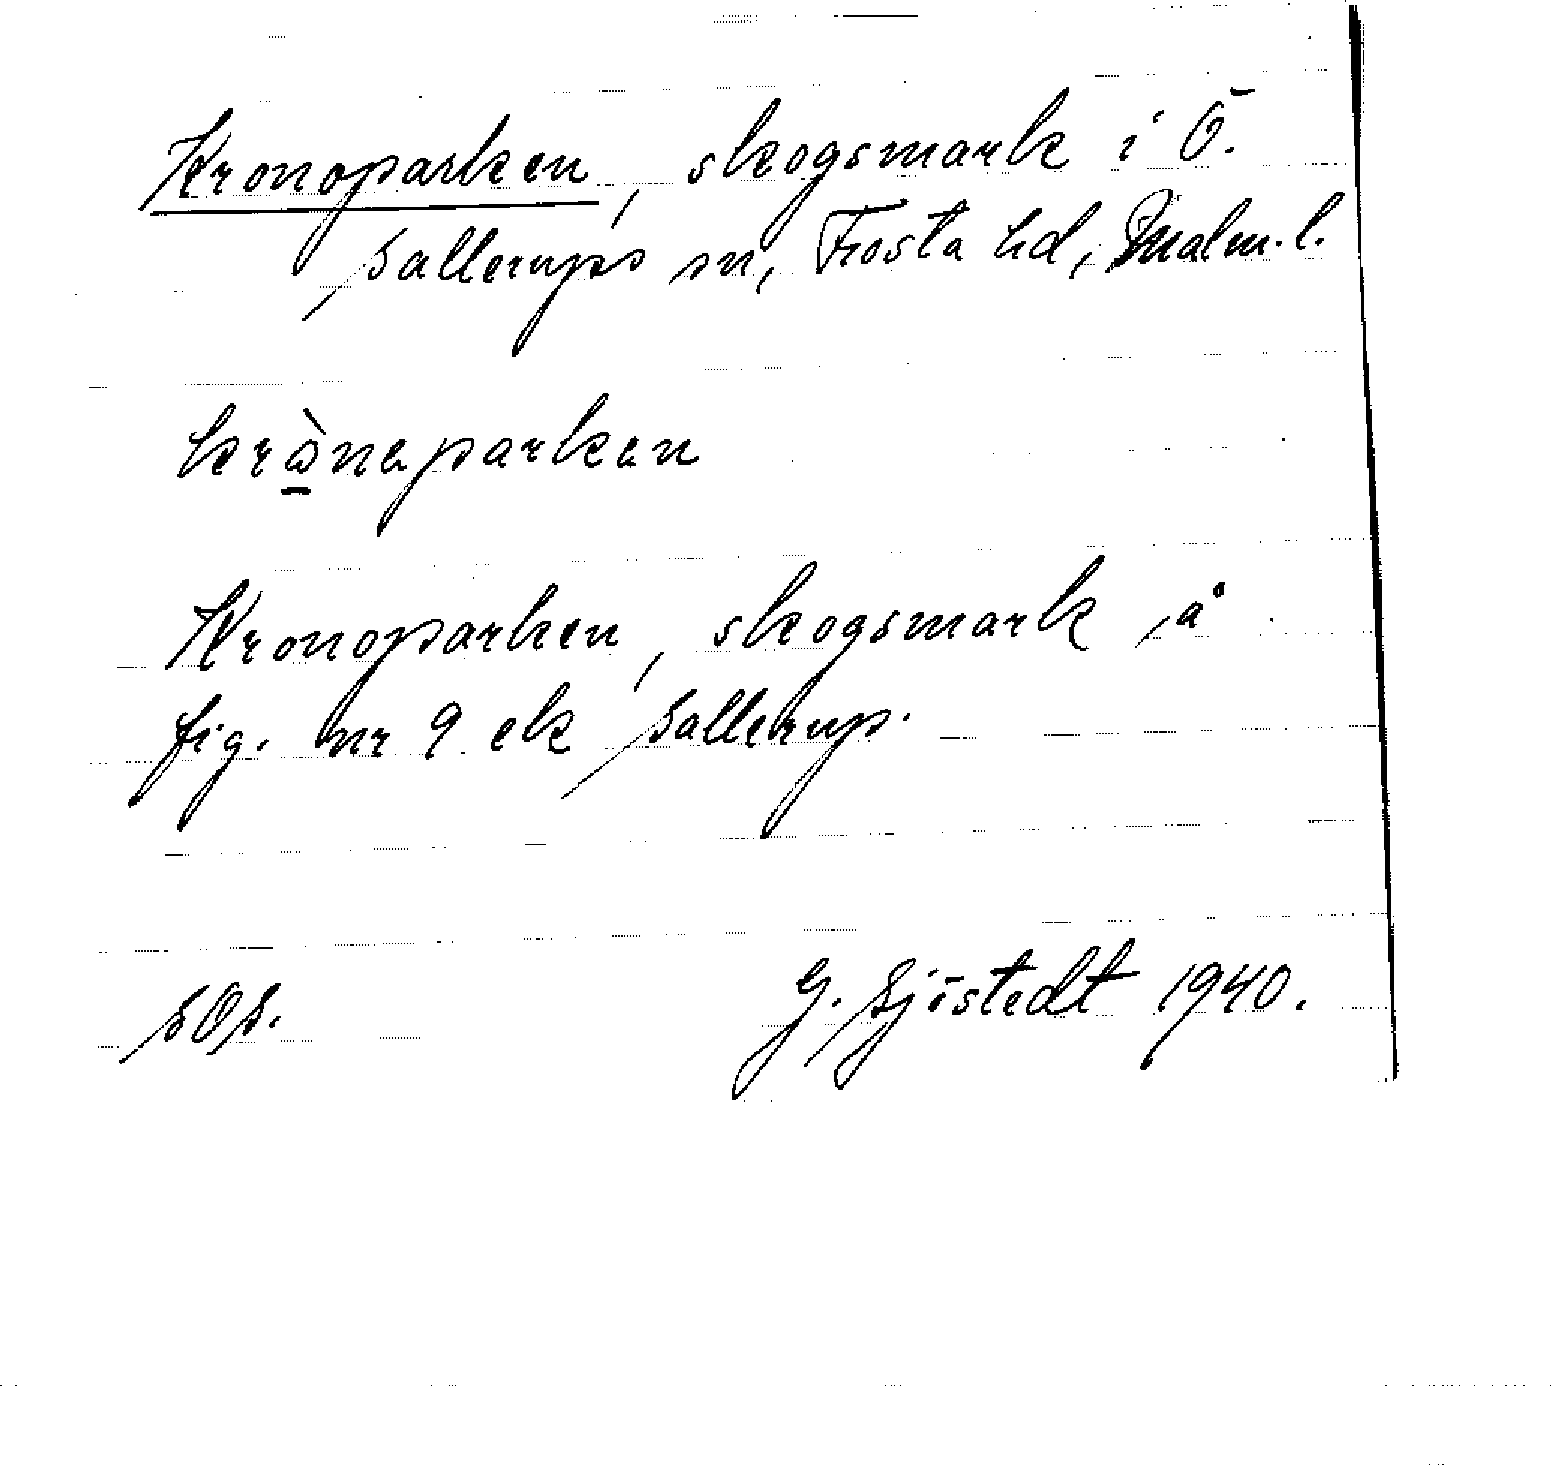 Kronoparken, skogsmark i Ö.
Sallerups sn, Frosta hd, Malm.l.
kròneparken
Kronoparken, skogsmark på
fig. nr 9 ek Sallerup.
SOS.
G. Sjöstedt 1940.